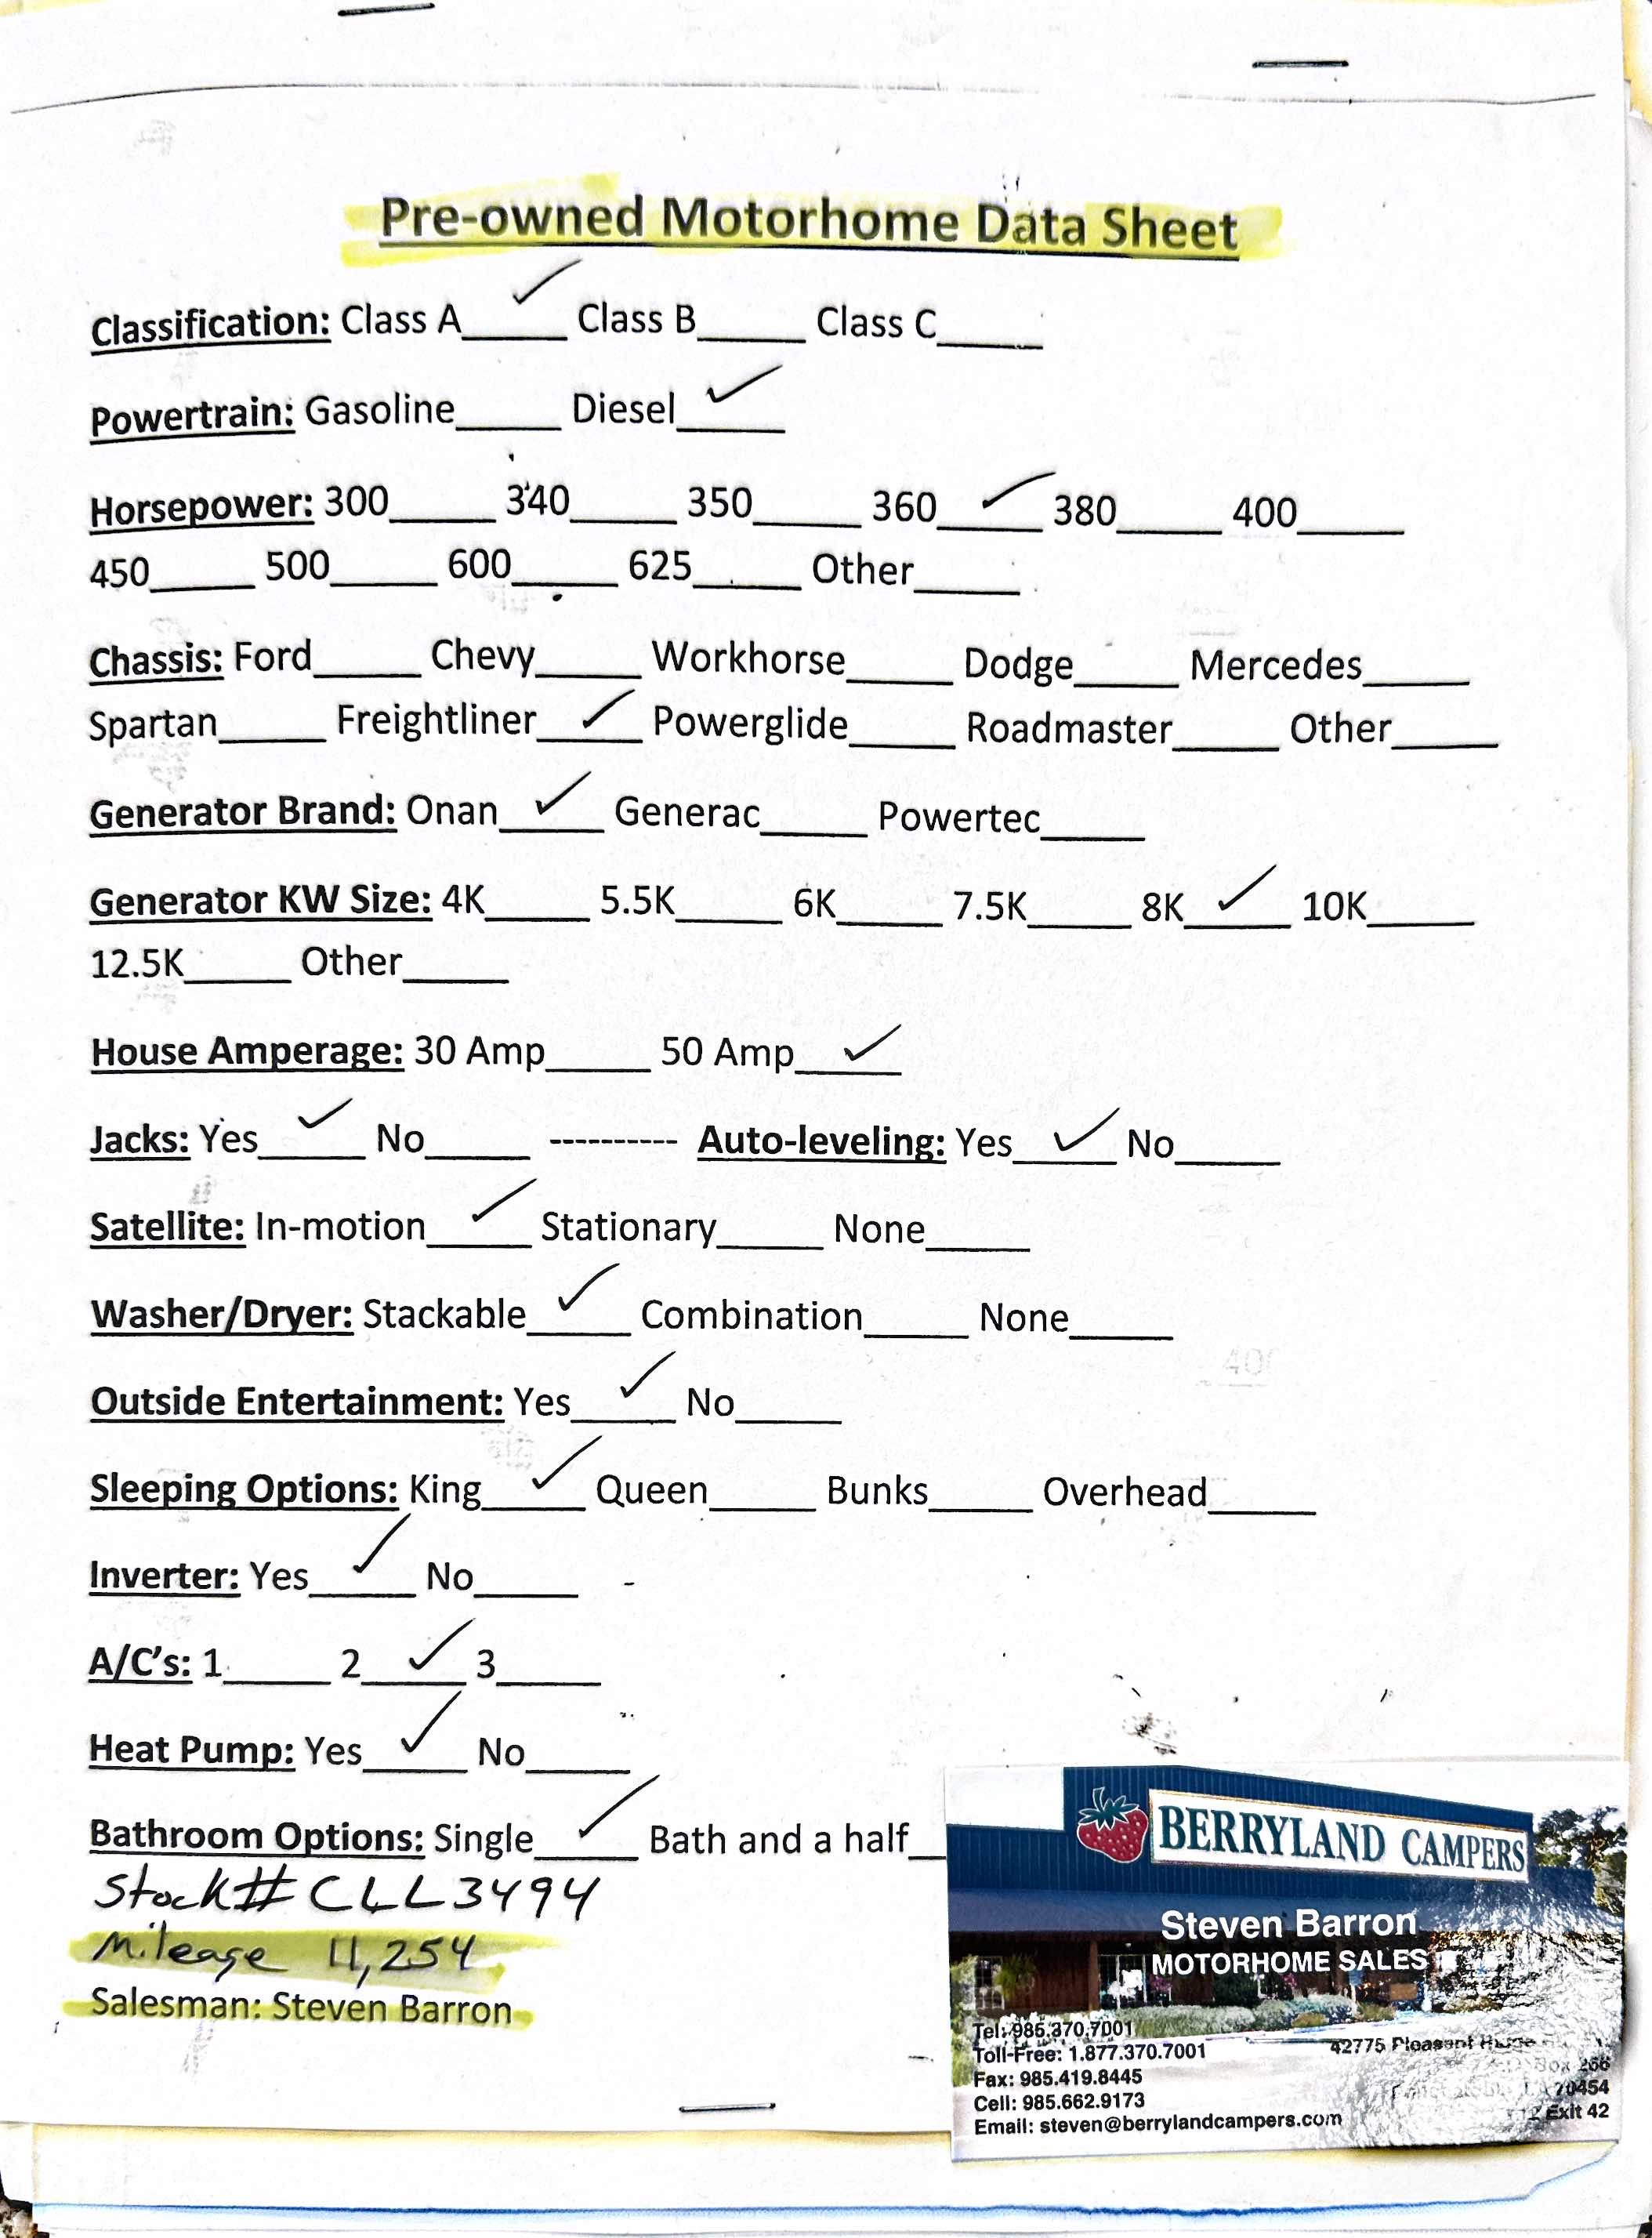 Pre-owned Motorhome Data Sheet
Classification: Class A_____ ✓ Class B_____ Class C_____
Powertrain: Gasoline_____ Diesel_____ ✓
Horsepower: 300_____ 340_____ 350_____ 360_____ ✓ 380_____ 400_____
450_____ 500_____ 600_____ 625_____ Other_____
Chassis: Ford_____ Chevy_____ Workhorse_____ Dodge_____ Mercedes_____
Spartan_____ Freightliner_____ ✓ Powerglide_____ Roadmaster_____ Other_____
Generator Brand: Onan_____ ✓ Generac_____ Powertec_____
Generator KW Size: 4K_____ 5.5K_____ 6K_____ 7.5K_____ 8K_____ ✓ 10K_____
12.5K_____ Other_____
House Amperage: 30 Amp_____ 50 Amp_____ ✓
Jacks: Yes_____ ✓ No_____ ---------- Auto-leveling: Yes_____ ✓ No_____
Satellite: In-motion_____ ✓ Stationary_____ None_____
Washer/Dryer: Stackable_____ ✓ Combination_____ None_____
Outside Entertainment: Yes_____ ✓ No_____
Sleeping Options: King_____ ✓ Queen_____ Bunks_____ Overhead_____
Inverter: Yes_____ ✓ No_____
A/C's: 1_____ 2_____ ✓ 3_____
Heat Pump: Yes_____ ✓ No_____
Bathroom Options: Single_____ ✓ Bath and a half__
Stock# CLL3494
Mileage 11,254
Salesman: Steven Barron
BERRYLAND CAMPERS
Steven Barron
MOTORHOME SALES
Tel: 985.370.7001
Toll-Free: 1.877.370.7001
Fax: 985.419.8445
Cell: 985.662.9173
Email: steven@berrylandcampers.com
42775 Pleasant
Box 266
70454
Exit 42